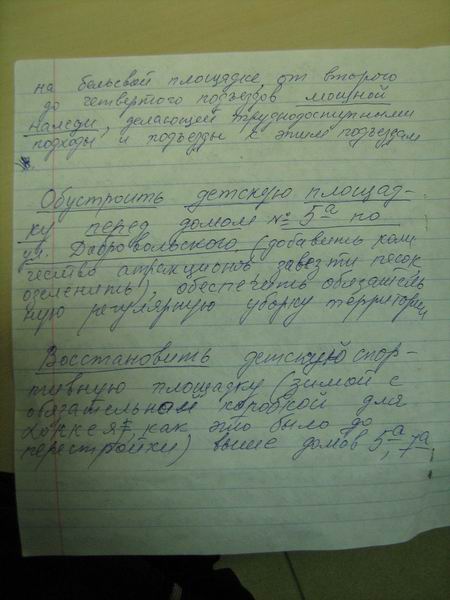 на бельевой площадке, от второго
до четвертого подъездов мощной
наледи, делающей труднодоступными
подходы и подъезды к этим подъездам
Обустроить детскую площад-
ку перед домом № 5а по
ул. Добровольского (добавить коли
чество атракционов, завезти песок
озеленить), обеспечить обязатель
ную регулярную уборку территории
Восстановить детскую спор-
тивную площадку (зимой с
обязательной коробкой для
хоккея, как это было до
перестройки) выше домов 5а, 7а.